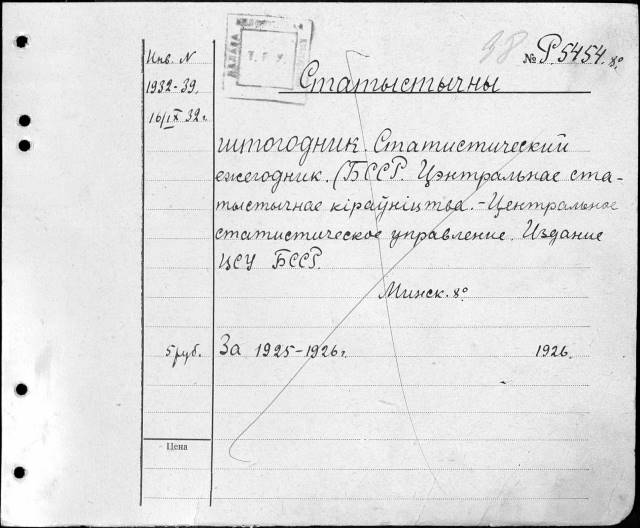 38 № Р.5454. 8º
Инв. N
1932-39.
16/IX 32 г.
Т. Г. У.
Статыстычны
штогодник. Статистический
ежегодник. (БССР. Цэнтральнае ста-
тыстычнае кіраўніцтва. - Центральное
статистическое управление. Издание
ЦСУ БССР.
Минск. 8º
5 руб. За 1925-1926 г. 1926.
Цена